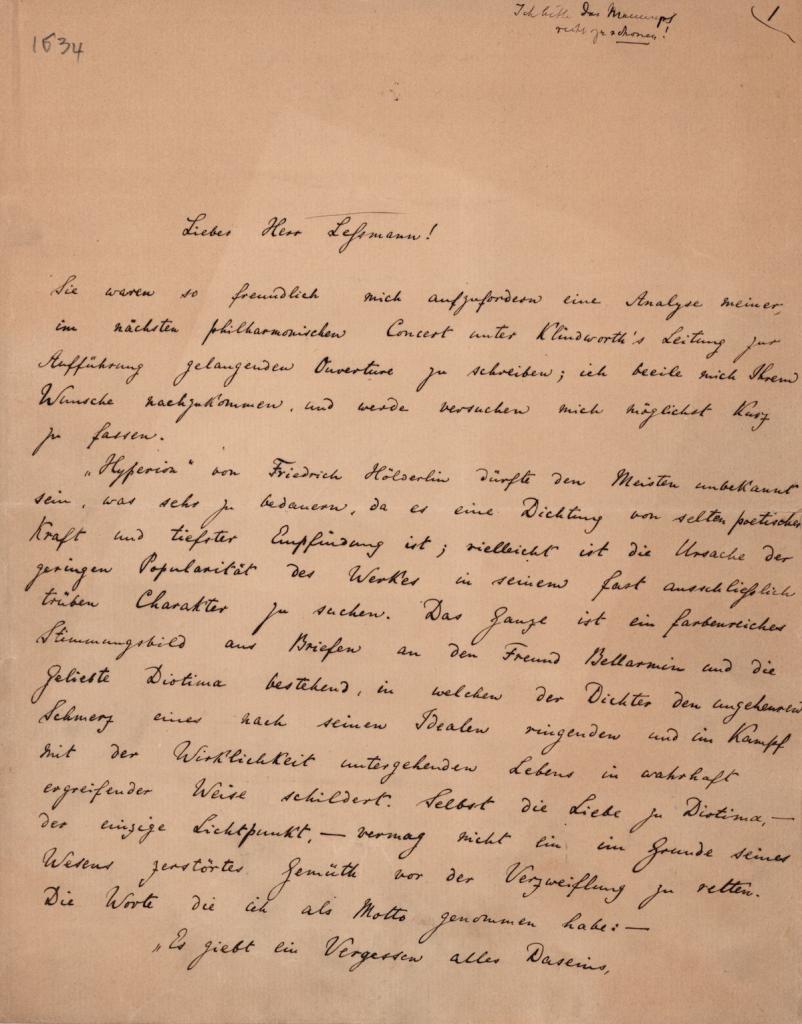 1634
Ich bitte das Manuscpt
recht zu schonen!
1
Lieber Herr Leßmann!
Sie waren so freundlich mich aufzufordern eine Analyse meiner,
im nächsten philharmonischen Concert unter Klindworth's Leitung zur
Aufführung gelangenden Ouverture zu schreiben; ich beeile mich Ihrem
Wunsche nachzukommen, und werde versuchen mich möglichst kurz
zu fassen.
„Hyperion“ von Friedrich Hölderlin dürfte den Meisten unbekannt
sein, was sehr zu bedauern, da es eine Dichtung von selten poetischer
Kraft und tiefster Empfindung ist; vielleicht ist die Ursache der
geringen Popularität des Werkes in seinem fast ausschließlich
trüben Charakter zu suchen. Das Ganze ist ein farbenreiches
Stimmungsbild aus Briefen an den Freund Bellarmin und die
Geliebte Diotima bestehend, in welchen der Dichter den ungeheuren
Schmerz eines nach seinen Idealen ringenden und im Kampf
mit der Wirklichkeit untergehenden Lebens in wahrhaft
ergreifender Weise schildert. Selbst die Liebe zu Diotima, —
der einzige Lichtpunkt, — vermag nicht ein im Grunde seines
Wesens zerstörtes Gemüth vor der Verzweiflung zu retten.
Die Worte die ich als Motto genommen habe: —
„Es giebt ein Vergessen alles Daseins,